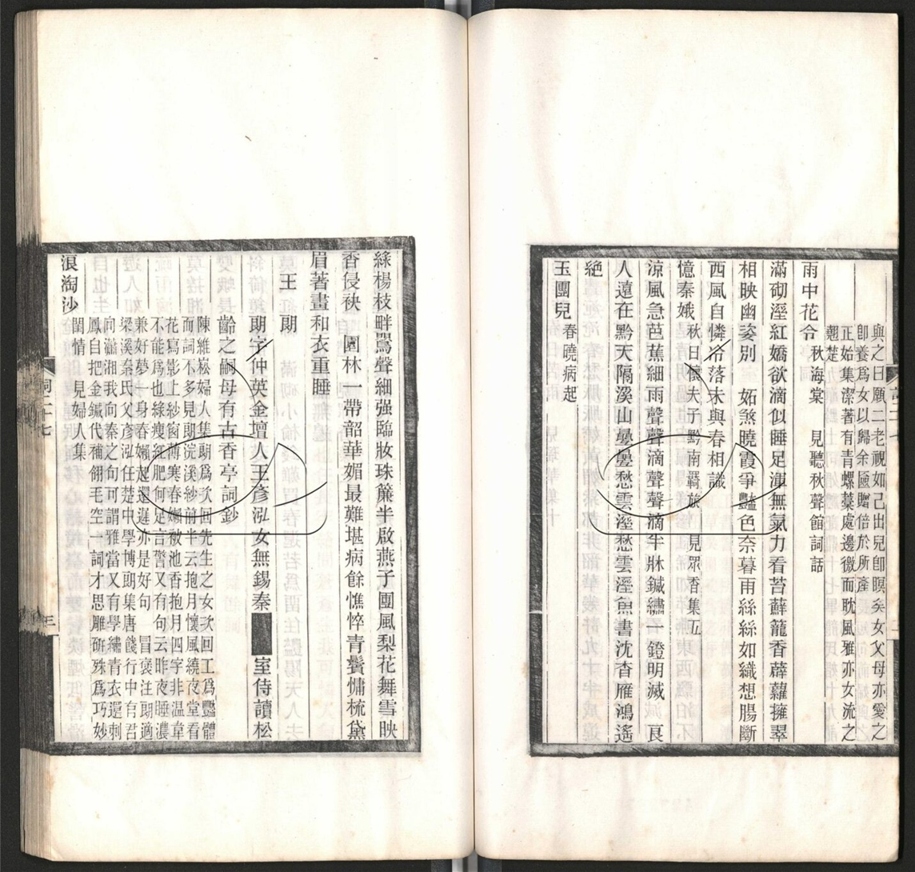 與之日願二老視如己出兒卽瞑矣女父母亦愛之
卽養爲女以歸余匳贈倍於所產
正始集潔著有青螺葊處邊徼而耽風雅亦女流之
翹楚
雨中花令 秋海棠 見聽秋聲館詞話
滿砌溼紅嬌欲滴似睡足渾無氣力看苔蘚籠香薜蘿擁翠
相映幽姿別 妬煞曉霞爭豔色奈暮雨絲絲如織想腸斷
西風自憐冷落宋與春相識
憶秦娥 秋日懷夫子黔南羈旅 見眾香集五
涼風急芭蕉細雨聲聲滴聲聲滴半牀鍼繡一鐙明滅 良
人遠在黔天隔溪山曡曡愁雲溼愁雲溼魚書沈杳雁鴻遙
絕
玉團兒 春曉病起
絲楊枝畔鶯聲細强臨妝珠簾半啟燕子團風梨花舞雪映
香侵袂 園林一帶韶華媚最難堪病餘憔悴青鬢慵梳黛
眉著畫和衣重睡
王朗
朗字仲英金壇人王彥泓女無錫秦 室侍讀松
齡之嗣母有古香亭詞鈔
陳維崧婦人集朗爲次回先生之女次回工爲豔體
而詞不多見朗浣溪紗前半云抱月懷風繞夜堂看
花寫影上紗窗薄寒春嬾被池香抱月四字非温韋
不能爲也綠瘦紅肥何足言警又有句云昨夜睡濃
兼好夢一身春嬾起還遲亦是好句 冒褒注朗適
梁溪秦氏父彥泓任楚中學博朗集唐餞行中有吾
向瀟湘我向秦之句可謂雅當又有學繡青衣還刺
鳳自把金鍼代補翎毛空一詞才思雕硏殊爲巧妙
浪淘沙 閨情 見婦人集
詞二十七
三